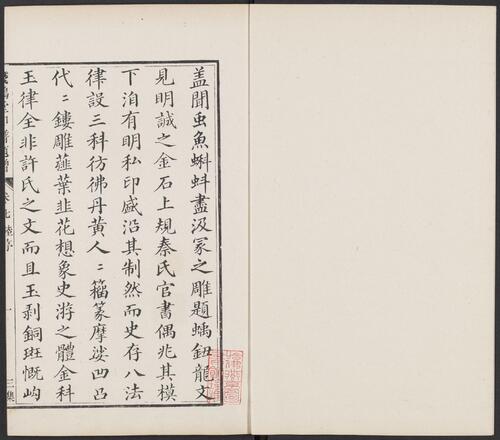 盖聞虫魚蝌蚪盡汲冢之雕題螭鈕龍文
見明誠之金石上規秦氏官書偶兆其模
下洎有明私印盛沿其制然而史存八法
律設三科彷彿丹黄人〻籀篆摩娑凹凸
代〻鏤雕薤葉韭花想象史游之體金科
玉律全非許氏之文而且玉剥銅斑慨岣
陸序
一
三集